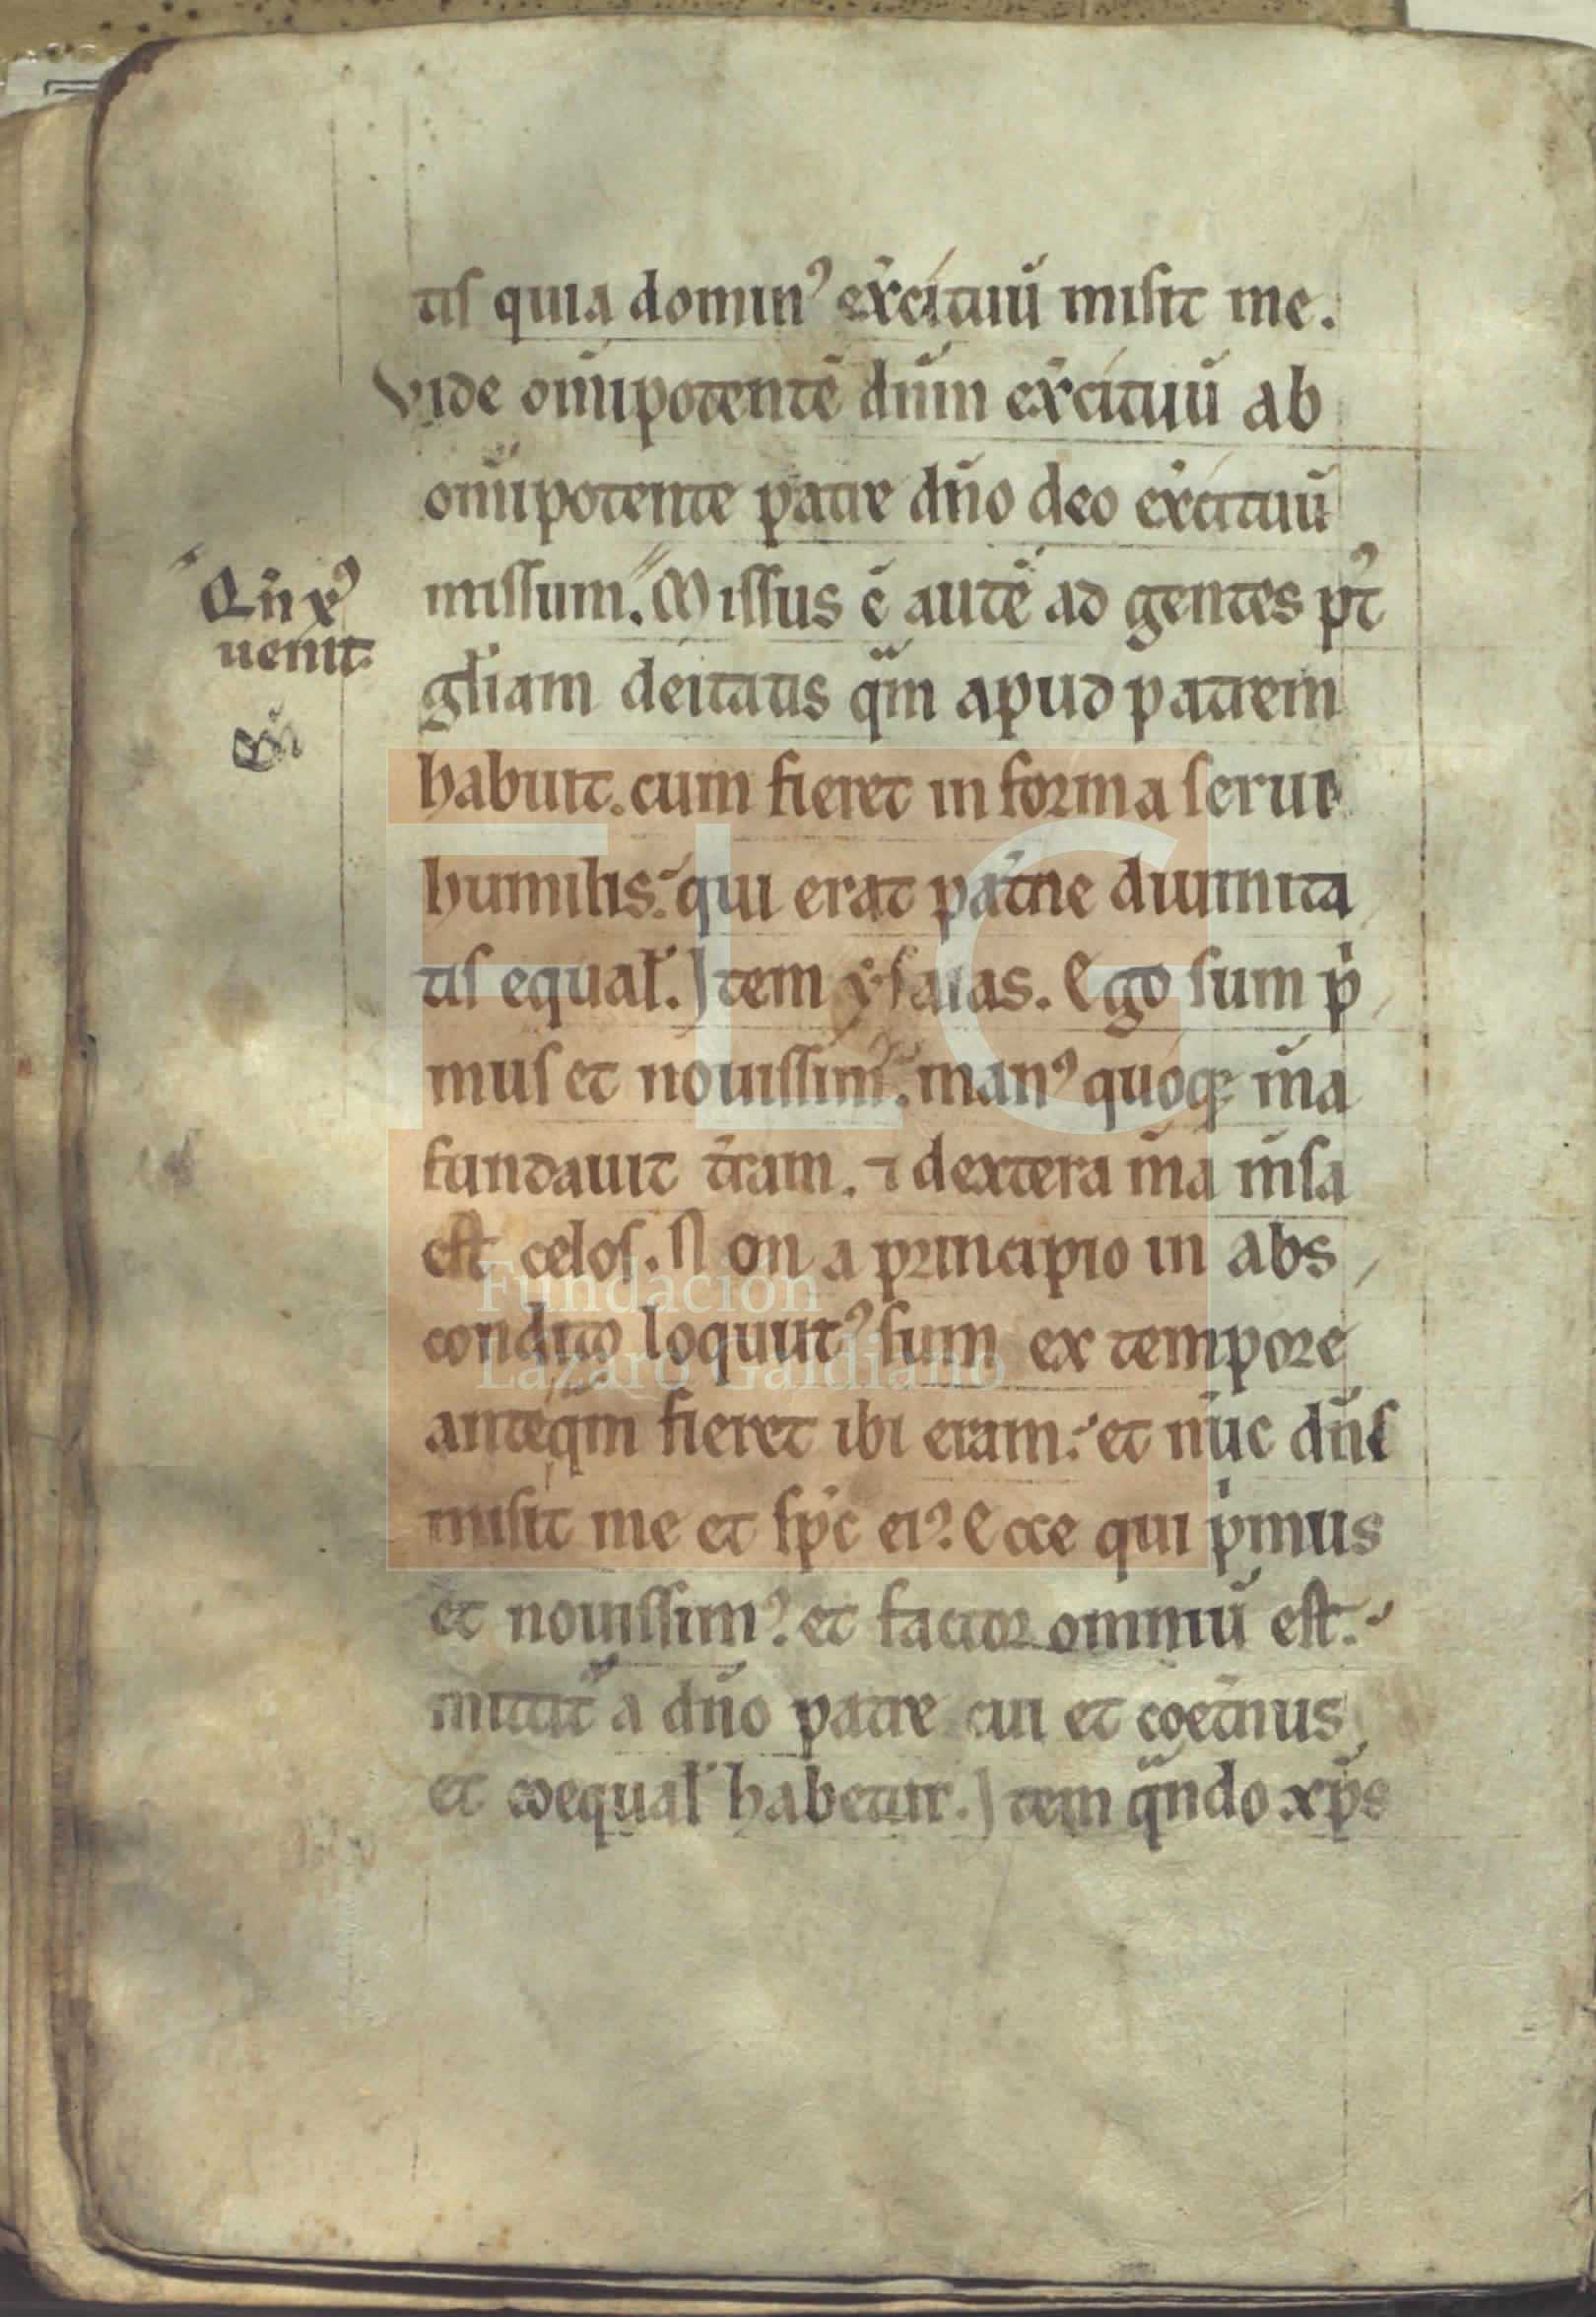 tis quia dominꝰ exc̉ituū misit me.
Vide om̄ipotentē dn̄m exc̉ituū ab
om̄ipotente patre dn̄o deo exc̉ituū
missum. Missus ē autē ad gentes pꝰt
Qn̄ xꝰ
uenit.
gl̄iam deitatis qm̄ apud patrem
habuit. cum fieret in forma serui
humilis. qui erat pat̉ne diuinita
tis equal̉. Item ysaias. Ego sum pͥ
mus et nouissim̉. manꝰ quoqꝫ m̄a
fundauit t̉ram. ⁊ dextera m̄a m̄sa
est celos. Non a principio in abs
condito loquutꝰ sum ex tempore
anteqm̄ fieret ibi eram. et nūc dn̄s
misit me et sp̄c eiꝰ. Ecce qui pͥmus
et nouissimꝰ. et factor omniū est.
mittit̉ a dn̄o patre cui et coet̉nus
et coequal̉ habetur. Item qn̄do xp̄s
Fundación
Lázaro Galdiano
FLG